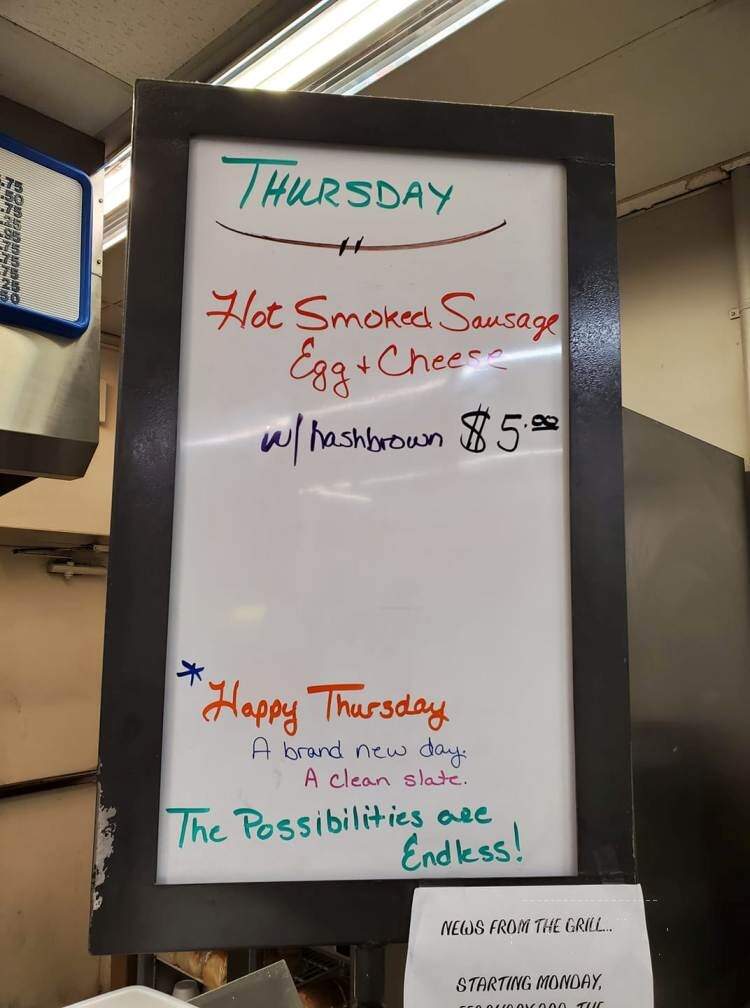 THURSDAY
Hot Smoked Sausage
Egg + Cheese
w/ hashbrown $5.00
* Happy Thursday
A brand new day.
A clean slate.
The Possibilities are
Endless!
NEWS FROM THE GRILL...
STARTING MONDAY,